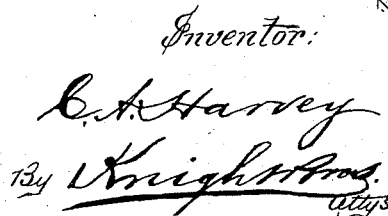 Inventor:
C. A. Harvey
By Knight Bros.
Attys